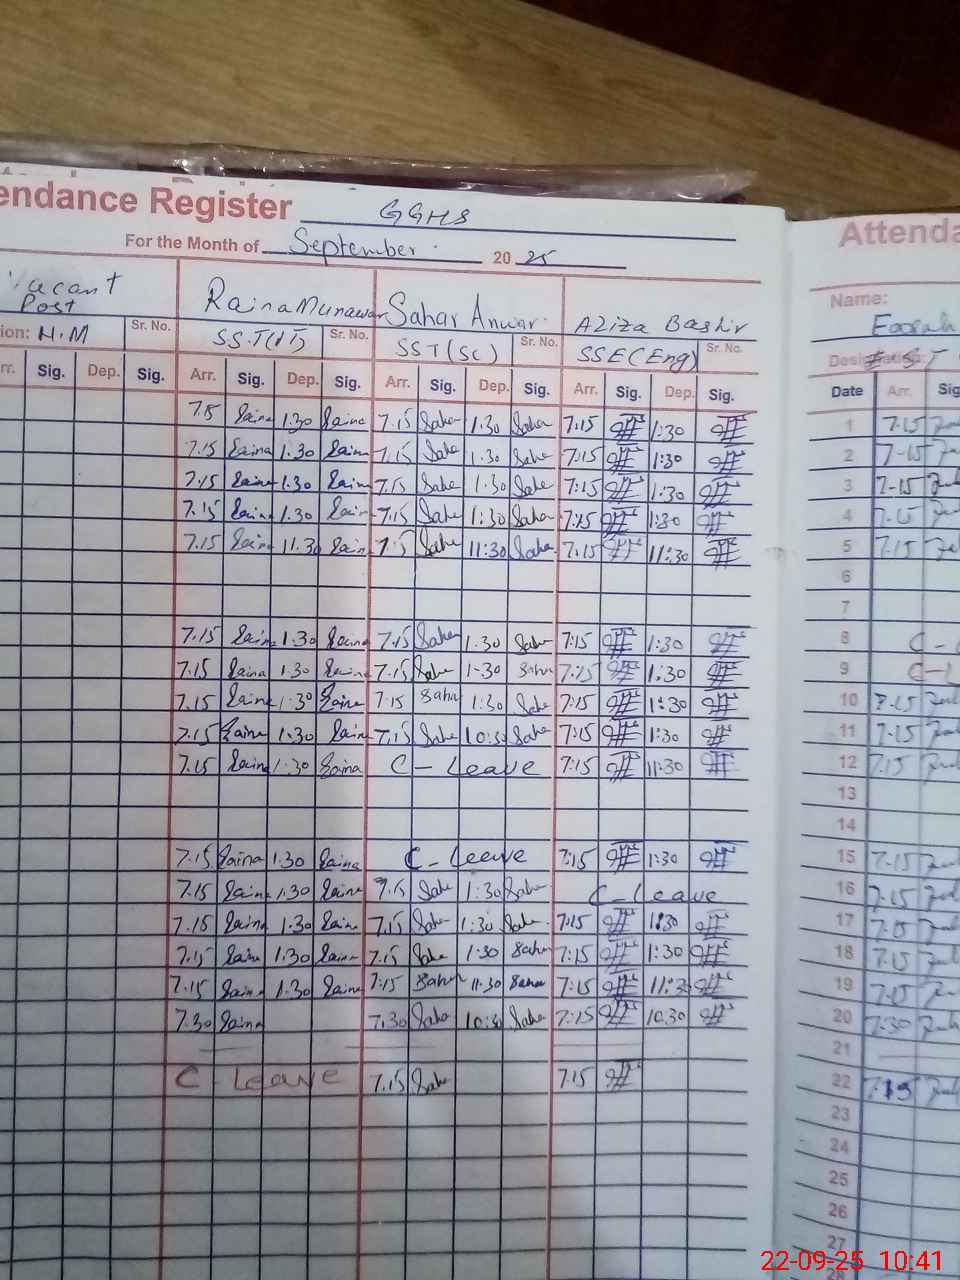 endance Register GGHS
For the Month of September 20 25
Vacant Post Raina Munawar Sahar Anwar Aziza Bashir
ion: H.M Sr. No. SS.T(IT) Sr. No. SST(Sc) Sr. No. SSE(Eng) Sr. No.
rr. Sig. Dep. Sig. Arr. Sig. Dep. Sig. Arr. Sig. Dep. Sig. Arr. Sig. Dep. Sig.
7.15 Raina 1.30 Raina 7.15 Sahar 1.30 Sahar 7:15 1:30
7.15 Raina 1.30 Raina 7.15 Sahar 1.30 Sahar 7:15 1:30
7.15 Raina 1.30 Raina 7.15 Sahar 1.30 Sahar 7:15 1:30
7.15 Raina 1.30 Raina 7.15 Sahar 1:30 Sahar 7:15 1:30
7.15 Raina 11.30 Raina 7.15 Sahar 11:30 Sahar 7:15 11:30
7.15 Raina 1.30 Raina 7.15 Sahar 1.30 Sahar 7:15 1:30
7.15 Raina 1.30 Raina 7.15 Sahar 1.30 Sahar 7:15 1:30
7.15 Raina 1.30 Raina 7.15 Sahar 1:30 Sahar 7:15 1:30
7.15 Raina 1.30 Raina 7.15 Sahar 10:30 Sahar 7:15 1:30
7.15 Raina 1.30 Raina C-Leave 7:15 11:30
7.15 Raina 1.30 Raina C-Leave 7:15 1:30
7.15 Raina 1.30 Raina 7.15 Sahar 1:30 Sahar C-Leave
7.15 Raina 1.30 Raina 7.15 Sahar 1:30 Sahar 7:15 1:30
7.15 Raina 1.30 Raina 7.15 Sahar 1:30 Sahar 7:15 1:30
7.15 Raina 1.30 Raina 7:15 Sahar 11.30 Sahar 7:15 11:30
7.30 Raina 7.30 Sahar 10:30 Sahar 7:15 10.30
C-Leave 7.15 Sahar 7.15
Attenda
Name:
Date Arr. Sig
1 7.15
2 7-15
3 7-15
4 7-15
5 7.15
6
7
8 C-
9 C-L
10 7-15
11 7-15
12 7.15
13
14
15 7-15
16 7.15
17 7.15
18 7.15
19 7.15
20 7:30
21
22 7.15
23
24
25
26
27
28
22-09-25 10:41